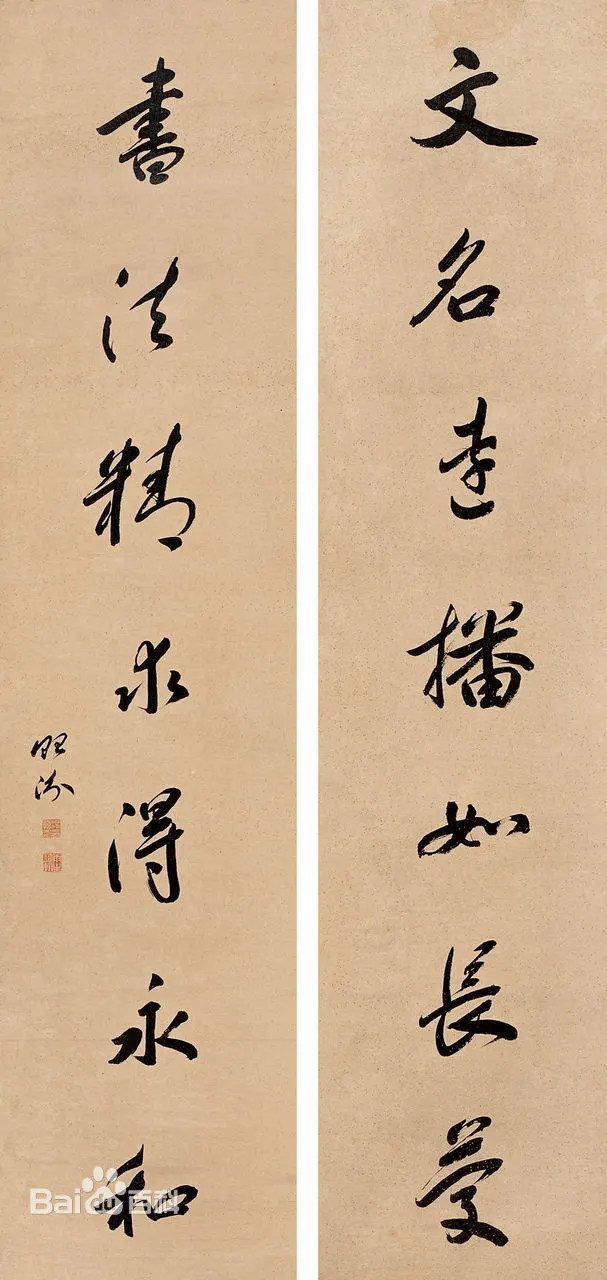 文名遠播如長慶
書法精求得永和
Bai du 百科